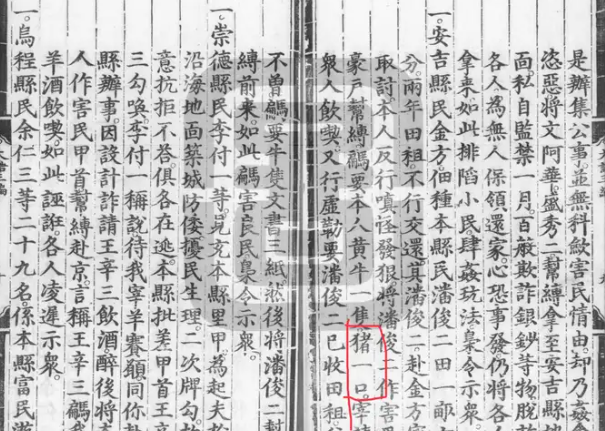 是辦集公事並無科斂害民情由却乃姦
慾惡將文阿華盛秀二幫縛拿至安吉縣地
面私自監禁一月百般欺詐銀鈔等物脫
各人為無人保領還家心恐事發仍將各
拿来如此排陷小民肆姦玩法梟令示衆
一安吉縣民金方佃種本縣民潘俊二田一畝
分兩年田租不行交還其潘俊二赴金方
取討本人反行嗔怪發狠將潘俊二作害
豪戸幫縛騙要本人黄牛一隻猪一口宰
衆人飲喫又行虚勒要潘俊二已收田租
不曽騙要牛隻文書三紙然後將潘俊二
縛前来如此騙害良民梟令示衆
一崇德縣民李付一等見充本縣里甲為起夫
沿海地面築城防倭擾民生理二次牌勾
意抗拒不答俱各在逃本縣批差甲首王辛
三勾喚李付一稱說待我宰羊賽願同你
縣辦事因設計詐請王辛三飲酒醉後將
人作害民甲首幫縛赴京言稱王辛三騙
羊酒飲喫如此誣誑各人凌遲示衆
一烏程縣民余仁三等二十九名係本縣富民